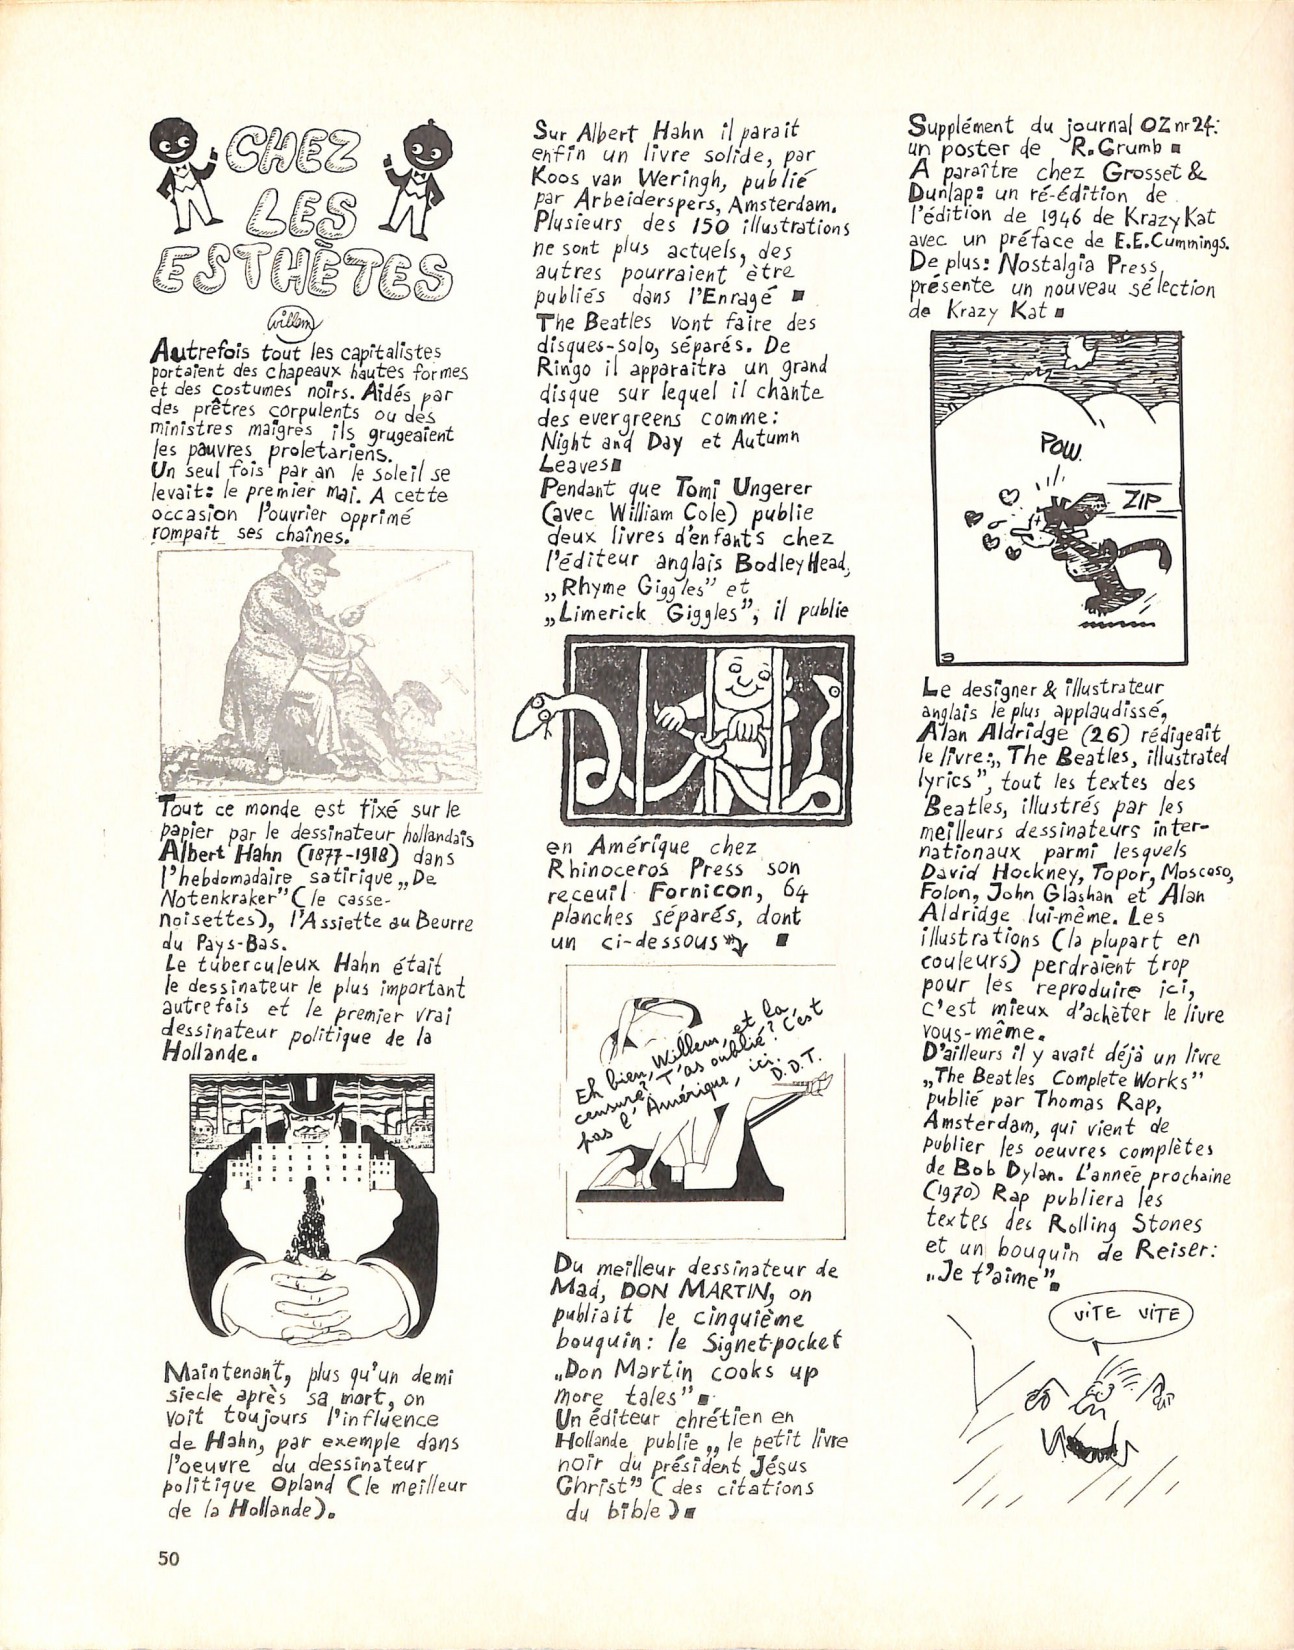 CHEZ
LES
ESTHÈTES
willem
Autrefois tout les capitalistes
portaient des chapeaux hautes formes
et des costumes noirs. Aidés par
des prêtres corpulents ou des
ministres maigres ils grugeaient
les pauvres proletariens.
Un seul fois par an le soleil se
levait: le premier mai. A cette
occasion l'ouvrier opprimé
rompait ses chaînes.
Tout ce monde est fixé sur le
papier par le dessinateur hollandais
Albert Hahn (1877-1918) dans
l'hebdomadaire satirique „De
Notenkraker" (le casse-
noisettes), l'Assiette au Beurre
du Pays-Bas.
Le tuberculeux Hahn était
le dessinateur le plus important
autrefois et le premier vrai
dessinateur politique de la
Hollande.
Maintenant, plus qu'un demi
siecle après sa mort, on
voit toujours l'influence
de Hahn, par exemple dans
l'oeuvre du dessinateur
politique Opland (le meilleur
de la Hollande).
50
Sur Albert Hahn il parait
enfin un livre solide, par
Koos van Weringh, publié
par Arbeiderspers, Amsterdam.
Plusieurs des 150 illustrations
ne sont plus actuels, des
autres pourraient être
publiés dans l'Enragé ■
The Beatles vont faire des
disques-solo, séparés. De
Ringo il apparaitra un grand
disque sur lequel il chante
des evergreens comme:
Night and Day et Autumn
Leaves■
Pendant que Tomi Ungerer
(avec William Cole) publie
deux livres d'enfants chez
l'éditeur anglais Bodley Head,
„Rhyme Giggles" et
„Limerick Giggles", il publie
en Amérique chez
Rhinoceros Press son
receuil Fornicon, 64
planches séparés, dont
un ci-dessous ■
Eh bien, Willem, et la
censure? T'as oublié? C'est
pas l'Amérique, ici.
D.D.T.
Du meilleur dessinateur de
Mad, DON MARTIN, on
publiait le cinquième
bouquin: le Signet-pocket
„Don Martin cooks up
more tales" ■
Un éditeur chrétien en
Hollande publie „le petit livre
noir du président Jésus
Christ" (des citations
du bible) ■
Supplément du journal OZ nr 24:
un poster de R. Crumb ■
A paraître chez Grosset &
Dunlap: un ré-édition de
l'édition de 1946 de Krazy Kat
avec un préface de E.E.Cummings.
De plus: Nostalgia Press
présente un nouveau sélection
de Krazy Kat ■
POW.
ZIP
3
Le designer & illustrateur
anglais le plus applaudissé,
Alan Aldridge (26) rédigeait
le livre: „The Beatles, illustrated
lyrics", tout les textes des
Beatles, illustrés par les
meilleurs dessinateurs inter-
nationaux parmi lesquels
David Hockney, Topor, Moscoso,
Folon, John Glashan et Alan
Aldridge lui-même. Les
illustrations (la plupart en
couleurs) perdraient trop
pour les reproduire ici,
c'est mieux d'achèter le livre
vous-même.
D'ailleurs il y avait déjà un livre
„The Beatles Complete Works"
publié par Thomas Rap,
Amsterdam, qui vient de
publier les oeuvres complètes
de Bob Dylan. L'année prochaine
(1970) Rap publiera les
textes des Rolling Stones
et un bouquin de Reiser:
„Je t'aime"■
VITE VITE